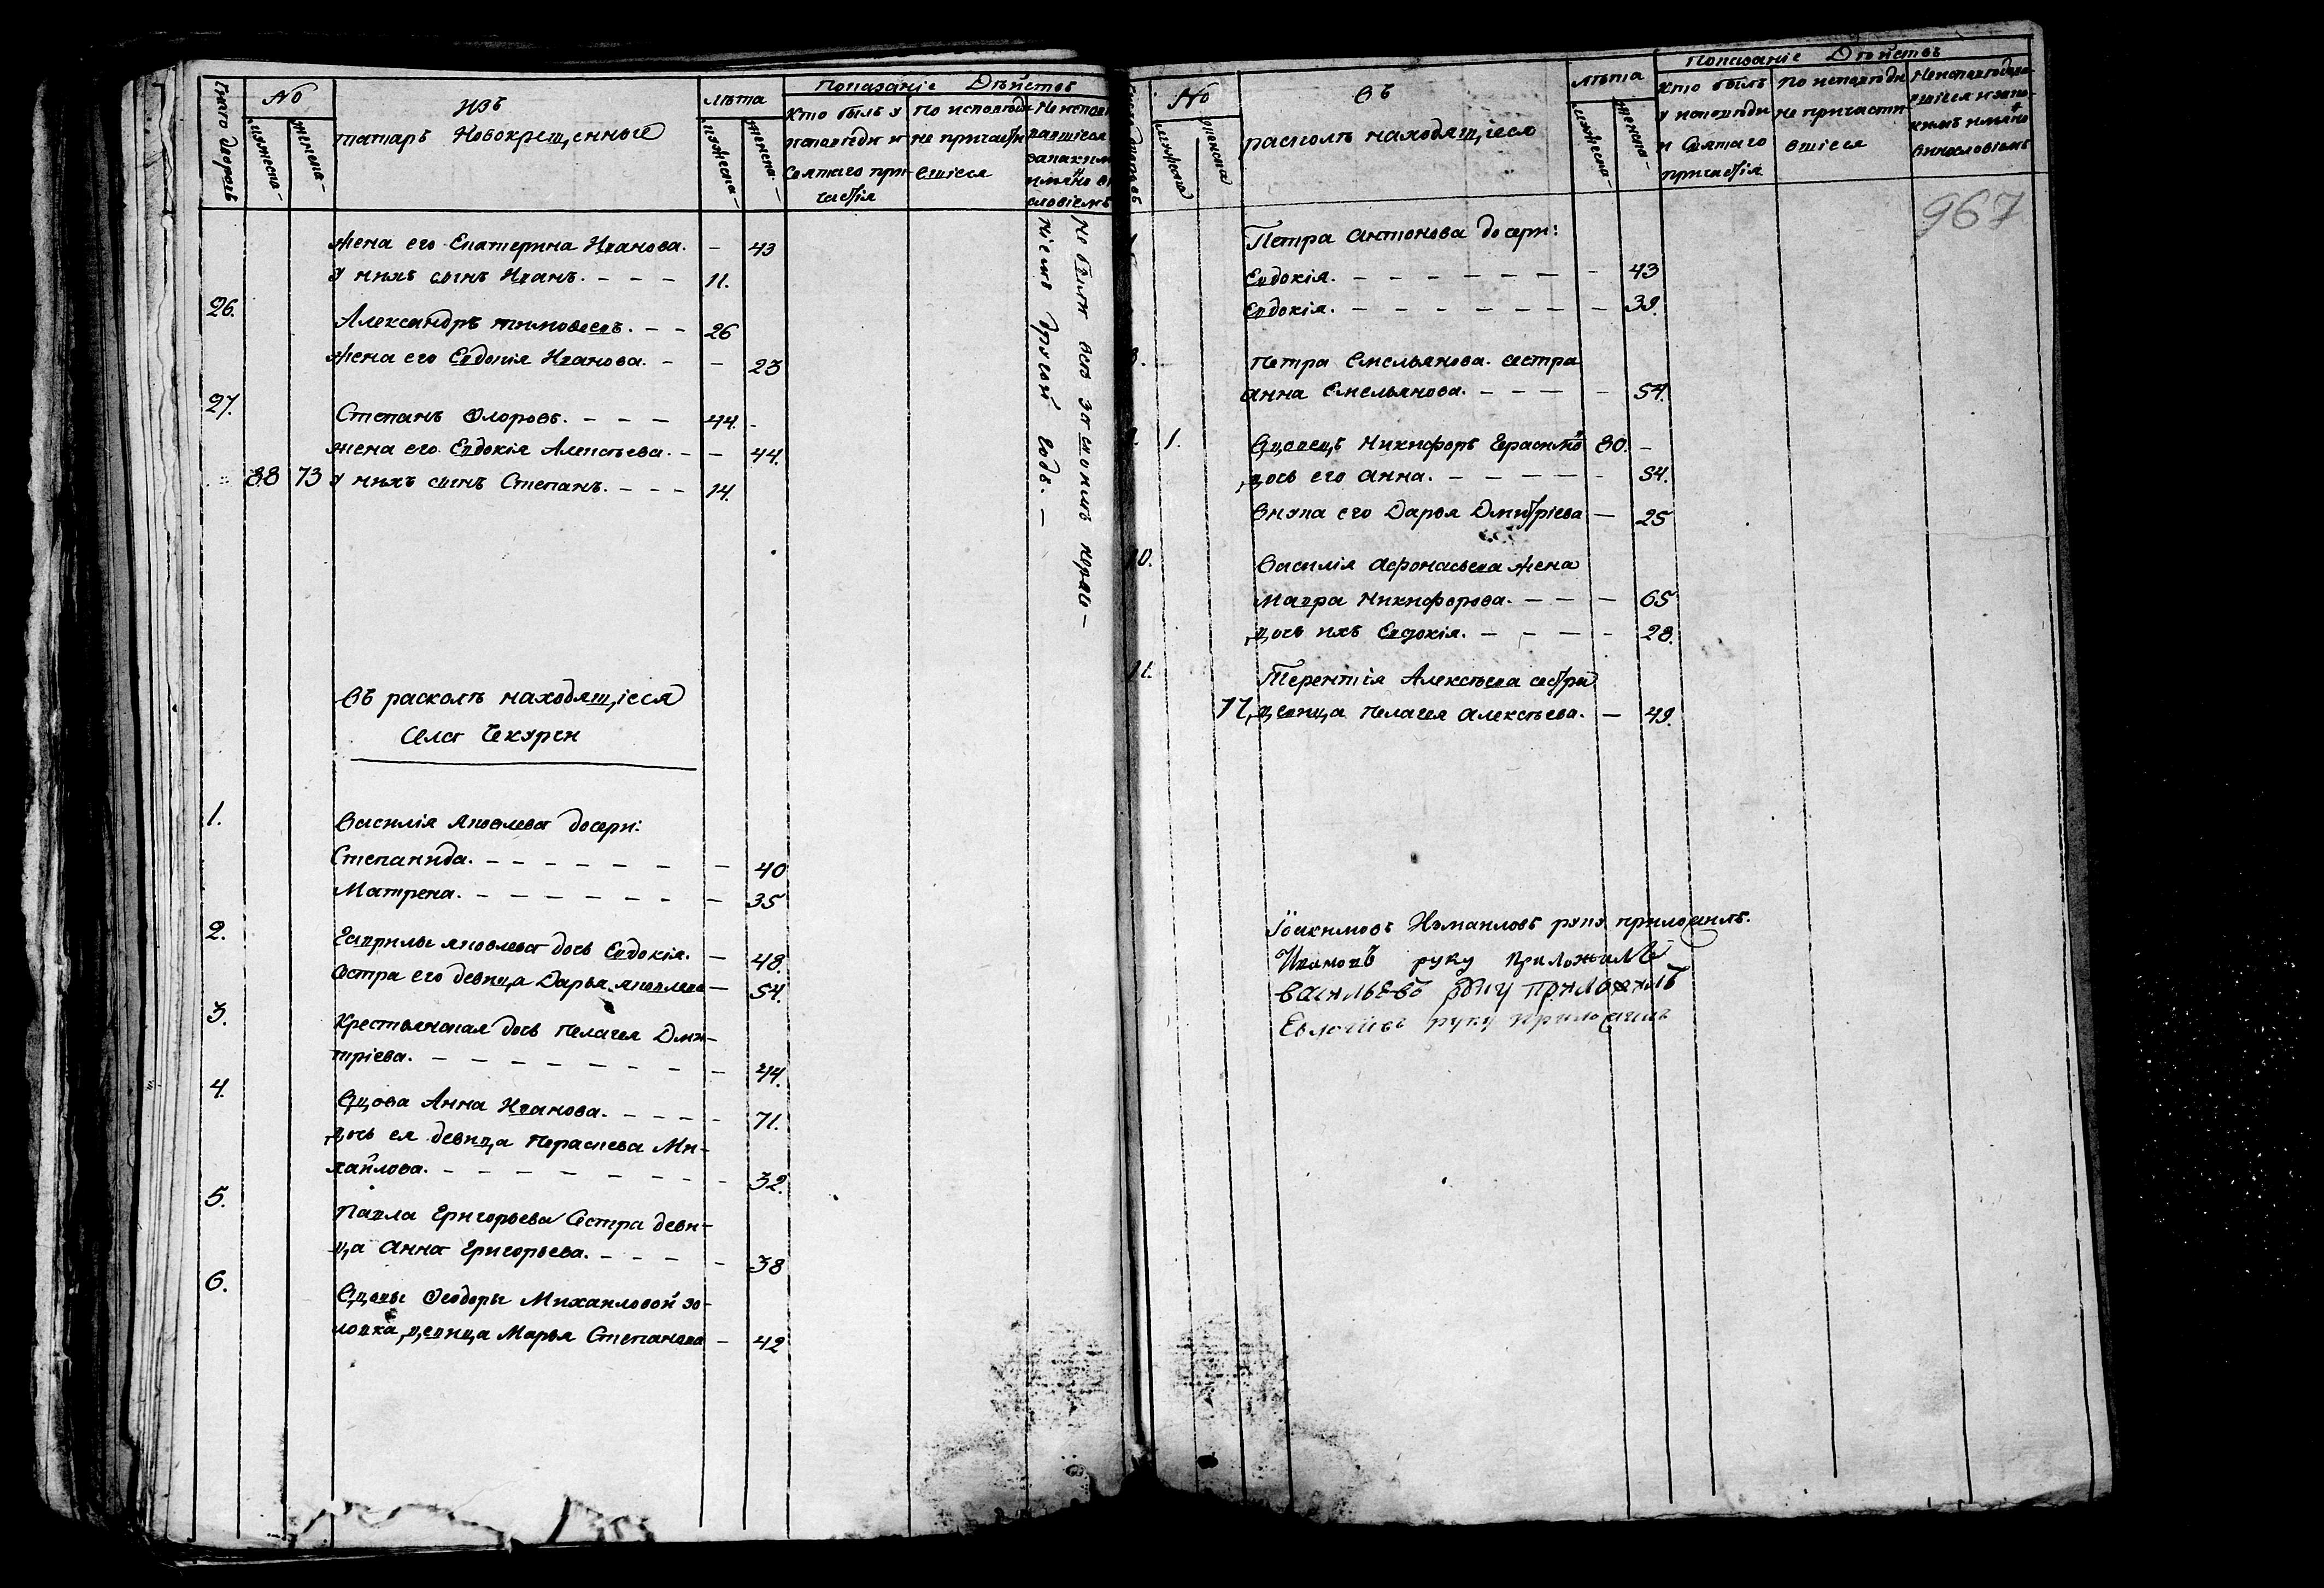 Число дворовъ
No
мужеска
женска
изъ
татаръ Новокрещенные
лѣта
мужеска
женска
Показаніе Дѣйствъ
Кто былъ у
исповѣди и
Святаго при-
частія
По исповѣди
не причасти
вшіеся
Не исповѣ
давшіеся
за какимъ
имяно ви
нословіемъ
жена его Екатерина Иванова. – 43
у нихъ сынъ Иванъ. – – – 11.
26.
Александръ тимоѳеевъ. – – 26
жена его Евдокія Иванова. – – 23
27.
Степанъ Ѳлоровъ. – – – 44. -
жена его Евдокія Алексѣева. – – 44.
88 73 у нихъ сынъ Степанъ. – – – 14.
Не были всѣ за
другой годъ. –
въ расколѣ находящіеся
Села Чекурги
1.
Василія яковлева дочери:
Степанида. – – – – – – – 40
Матрена. – – – – – – – 35
2.
Гаврилы яковлева дочь Евдокія. – 48.
Сестра его девица Дарья яковлева – 54.
3.
Крестьянская дочь пелагея Дми-
тріева. – – – – – – – – 44.
4.
Вдова Анна Иванова. – – – – 71.
дочь ея девица параскева Ми-
хайлова. – – – – – – – – 32.
5.
павла григорьева Сестра деви-
ца анна григорьева. – – – – 38
6.
Вдовы Ѳеодоры Михаиловой зо-
ловка, девица Марья Степанова – 42
No
мужеска
женска
въ
расколѣ находящіеся
лѣта
мужеска
женска
Показаніе Дѣйствъ
Кто былъ
у исповѣди
и Святаго
причастія
По исповѣди
не причасти
вшіеся
Неисповѣдава
вшіеся и за ка
кимъ имяно
винословіемъ
967
Петра антонова дочери:
Евдокія. – – – – – – – 43
Евдокія. – – – – – – – 39.
петра емельянова. сестра
анна емельянова. – – – – 54.
1. Вдовецъ Никифоръ Герасимо 80. -
дочь его анна. – – – – – 54.
внука его Дарья Дмитріева – 25
10.
Василія афонасьева жена
мавра никифорова. – – – 65
дочь ихъ Евдокія. – – – – 28.
11.
Терентія Алексѣева сестра
17. девица пелагея алексѣева. – 49.
Измаиловъ руку приложилъ.
Ивановъ руку приложилъ
васильевъ руку приложилъ
руку приложилъ